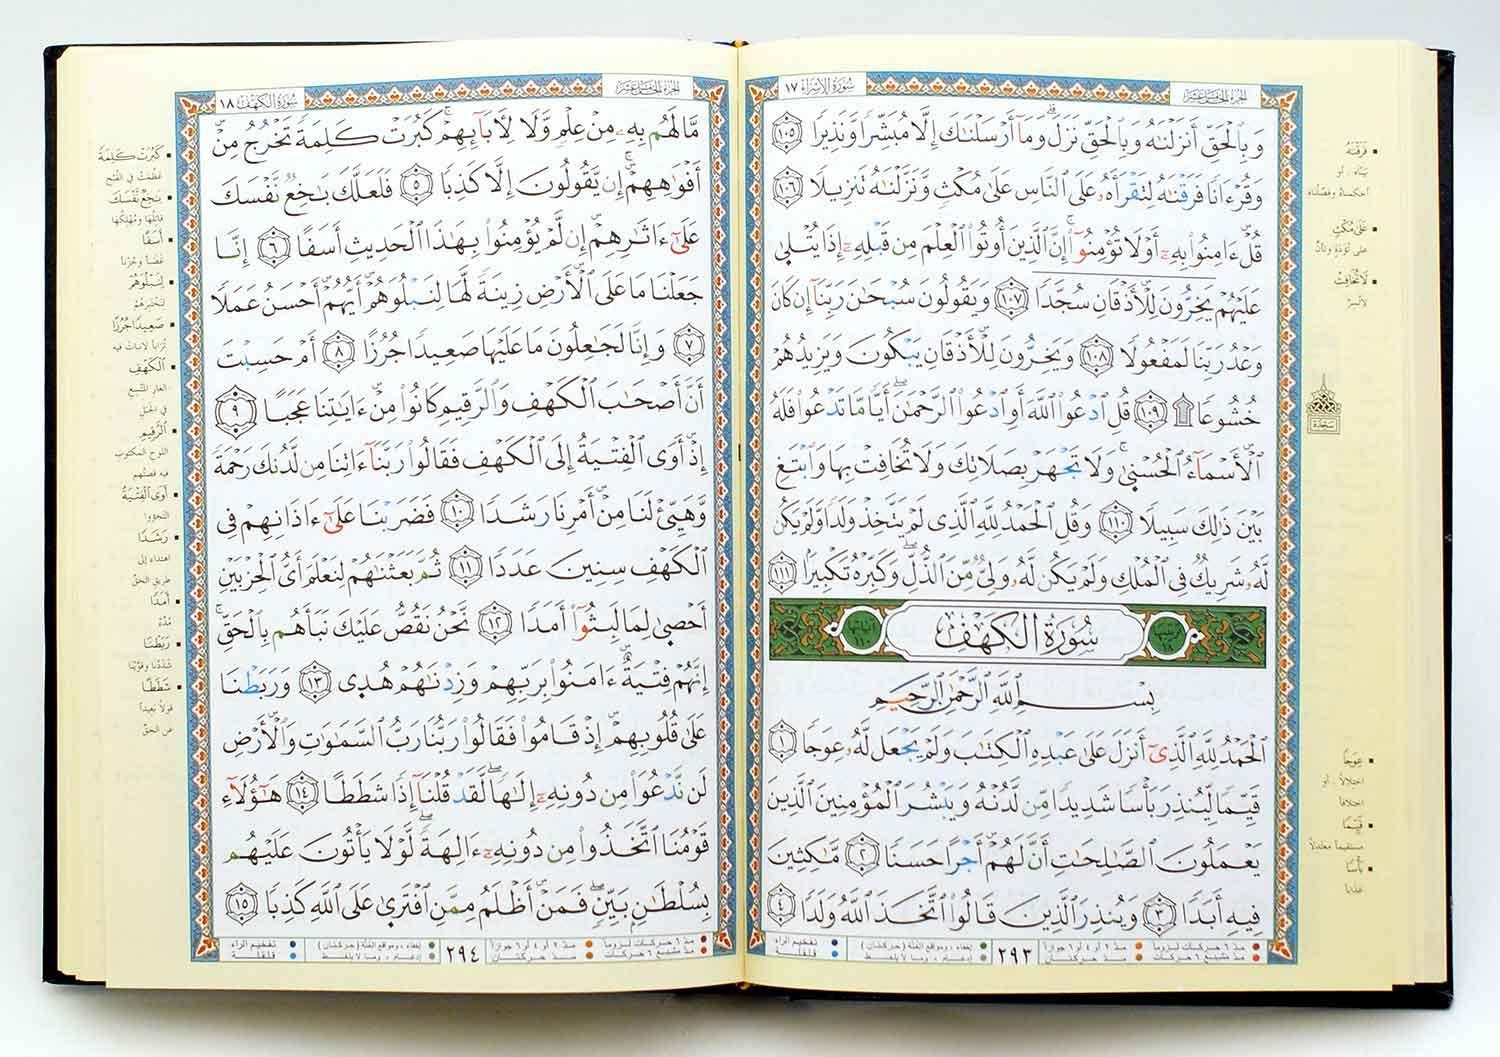 الجزء الخامس عشر
سورة الإسراء ١٧
وَبِٱلْحَقِّ أَنزَلْنَٰهُ وَبِٱلْحَقِّ نَزَلَ ۗ وَمَآ أَرْسَلْنَٰكَ إِلَّا مُبَشِّرًا وَنَذِيرًا ١٠٥
وَقُرْءَانًا فَرَقْنَٰهُ لِتَقْرَأَهُۥ عَلَى ٱلنَّاسِ عَلَىٰ مُكْثٍ وَنَزَّلْنَٰهُ تَنزِيلًا ١٠٦
قُلْ ءَامِنُوا۟ بِهِۦٓ أَوْ لَا تُؤْمِنُوٓا۟ ۚ إِنَّ ٱلَّذِينَ أُوتُوا۟ ٱلْعِلْمَ مِن قَبْلِهِۦٓ إِذَا يُتْلَىٰ
عَلَيْهِمْ يَخِرُّونَ لِلْأَذْقَانِ سُجَّدًا ١٠٧ وَيَقُولُونَ سُبْحَٰنَ رَبِّنَآ إِن كَانَ
وَعْدُ رَبِّنَا لَمَفْعُولًا ١٠٨ وَيَخِرُّونَ لِلْأَذْقَانِ يَبْكُونَ وَيَزِيدُهُمْ
خُشُوعًا ۩ ١٠٩ قُلِ ٱدْعُوا۟ ٱللَّهَ أَوِ ٱدْعُوا۟ ٱلرَّحْمَٰنَ ۖ أَيًّا مَّا تَدْعُوا۟ فَلَهُ
ٱلْأَسْمَآءُ ٱلْحُسْنَىٰ ۚ وَلَا تَجْهَرْ بِصَلَاتِكَ وَلَا تُخَافِتْ بِهَا وَٱبْتَغِ
بَيْنَ ذَٰلِكَ سَبِيلًا ١١٠ وَقُلِ ٱلْحَمْدُ لِلَّهِ ٱلَّذِى لَمْ يَتَّخِذْ وَلَدًا وَلَمْ يَكُن
لَّهُۥ شَرِيكٌ فِى ٱلْمُلْكِ وَلَمْ يَكُن لَّهُۥ وَلِىٌّ مِّنَ ٱلذُّلِّ ۖ وَكَبِّرْهُ تَكْبِيرًۢا ١١١
سُورَةُ الكَهْفِ
بِسْمِ ٱللَّهِ ٱلرَّحْمَٰنِ ٱلرَّحِيمِ
ٱلْحَمْدُ لِلَّهِ ٱلَّذِىٓ أَنزَلَ عَلَىٰ عَبْدِهِ ٱلْكِتَٰبَ وَلَمْ يَجْعَل لَّهُۥ عِوَجَا ١
قَيِّمًا لِّيُنذِرَ بَأْسًا شَدِيدًا مِّن لَّدُنْهُ وَيُبَشِّرَ ٱلْمُؤْمِنِينَ ٱلَّذِينَ
يَعْمَلُونَ ٱلصَّٰلِحَٰتِ أَنَّ لَهُمْ أَجْرًا حَسَنًا ٢ مَّٰكِثِينَ
فِيهِ أَبَدًا ٣ وَيُنذِرَ ٱلَّذِينَ قَالُوا۟ ٱتَّخَذَ ٱللَّهُ وَلَدًا ٤
مدّ ٦ حركات لزوماً مدّ ٢ أو ٤ أو ٦ جوازاً إخفاء، ومواقع الغُنَّة (حركتان) تفخيم الراء
مدّ مشبع ٦ حركات مدّ حركتان ٢٩٣ إدغام، وما لا يلفظ قلقلة
فَرَقْنَٰهُ
بيّناه. أو
أحكمناه وفصّلناه
عَلَىٰ مُكْثٍ
على تؤدة وتأنٍّ
لَا تُخَافِتْ
لا تسرّ
سجدة
عِوَجًا
اختلالاً. أو
اختلافاً
قَيِّمًا
مستقيماً معتدلاً
بَأْسًا
عذاباً
الجزء الخامس عشر
سورة الكهف ١٨
مَّا لَهُم بِهِۦ مِنْ عِلْمٍ وَلَا لِءَابَآئِهِمْ ۚ كَبُرَتْ كَلِمَةً تَخْرُجُ مِنْ
أَفْوَٰهِهِمْ ۚ إِن يَقُولُونَ إِلَّا كَذِبًا ٥ فَلَعَلَّكَ بَٰخِعٌ نَّفْسَكَ
عَلَىٰٓ ءَاثَٰرِهِمْ إِن لَّمْ يُؤْمِنُوا۟ بِهَٰذَا ٱلْحَدِيثِ أَسَفًا ٦ إِنَّا
جَعَلْنَا مَا عَلَى ٱلْأَرْضِ زِينَةً لَّهَا لِنَبْلُوَهُمْ أَيُّهُمْ أَحْسَنُ عَمَلًا
٧ وَإِنَّا لَجَٰعِلُونَ مَا عَلَيْهَا صَعِيدًا جُرُزًا ٨ أَمْ حَسِبْتَ
أَنَّ أَصْحَٰبَ ٱلْكَهْفِ وَٱلرَّقِيمِ كَانُوا۟ مِنْ ءَايَٰتِنَا عَجَبًا ٩
إِذْ أَوَى ٱلْفِتْيَةُ إِلَى ٱلْكَهْفِ فَقَالُوا۟ رَبَّنَآ ءَاتِنَا مِن لَّدُنكَ رَحْمَةً
وَهَيِّئْ لَنَا مِنْ أَمْرِنَا رَشَدًا ١٠ فَضَرَبْنَا عَلَىٰٓ ءَاذَانِهِمْ فِى
ٱلْكَهْفِ سِنِينَ عَدَدًا ١١ ثُمَّ بَعَثْنَٰهُمْ لِنَعْلَمَ أَىُّ ٱلْحِزْبَيْنِ
أَحْصَىٰ لِمَا لَبِثُوٓا۟ أَمَدًا ١٢ نَّحْنُ نَقُصُّ عَلَيْكَ نَبَأَهُم بِٱلْحَقِّ ۚ
إِنَّهُمْ فِتْيَةٌ ءَامَنُوا۟ بِرَبِّهِمْ وَزِدْنَٰهُمْ هُدًى ١٣ وَرَبَطْنَا
عَلَىٰ قُلُوبِهِمْ إِذْ قَامُوا۟ فَقَالُوا۟ رَبُّنَا رَبُّ ٱلسَّمَٰوَٰتِ وَٱلْأَرْضِ
لَن نَّدْعُوَا۟ مِن دُونِهِۦٓ إِلَٰهًا ۖ لَّقَدْ قُلْنَآ إِذًا شَطَطًا ١٤ هَٰٓؤُلَآءِ
قَوْمُنَا ٱتَّخَذُوا۟ مِن دُونِهِۦٓ ءَالِهَةً ۖ لَّوْلَا يَأْتُونَ عَلَيْهِم
بِسُلْطَٰنٍۭ بَيِّنٍ ۖ فَمَنْ أَظْلَمُ مِمَّنِ ٱفْتَرَىٰ عَلَى ٱللَّهِ كَذِبًا ١٥
مدّ ٦ حركات لزوماً مدّ ٢ أو ٤ أو ٦ جوازاً إخفاء، ومواقع الغُنَّة (حركتان) تفخيم الراء
مدّ مشبع ٦ حركات مدّ حركتان ٢٩٤ إدغام، وما لا يلفظ قلقلة
كَبُرَتْ كَلِمَةً
عظمت في القبح
بَٰخِعٌ نَّفْسَكَ
قاتلها ومهلكها
أَسَفًا
غضباً وحزناً
لِنَبْلُوَهُمْ
لنختبرهم
صَعِيدًا جُرُزًا
تراباً لا نبات فيه
ٱلْكَهْفِ
الغار المتّسع
في الجبل
ٱلرَّقِيمِ
اللوح المكتوب
فيه قصّتهم
أَوَى ٱلْفِتْيَةُ
التجؤوا
رَشَدًا
اهتداء إلى
طريق الحقّ
أَمَدًا
مُدّة
رَبَطْنَا
شددنا وقوّينا
شَطَطًا
قولاً بعيداً
عن الحقّ